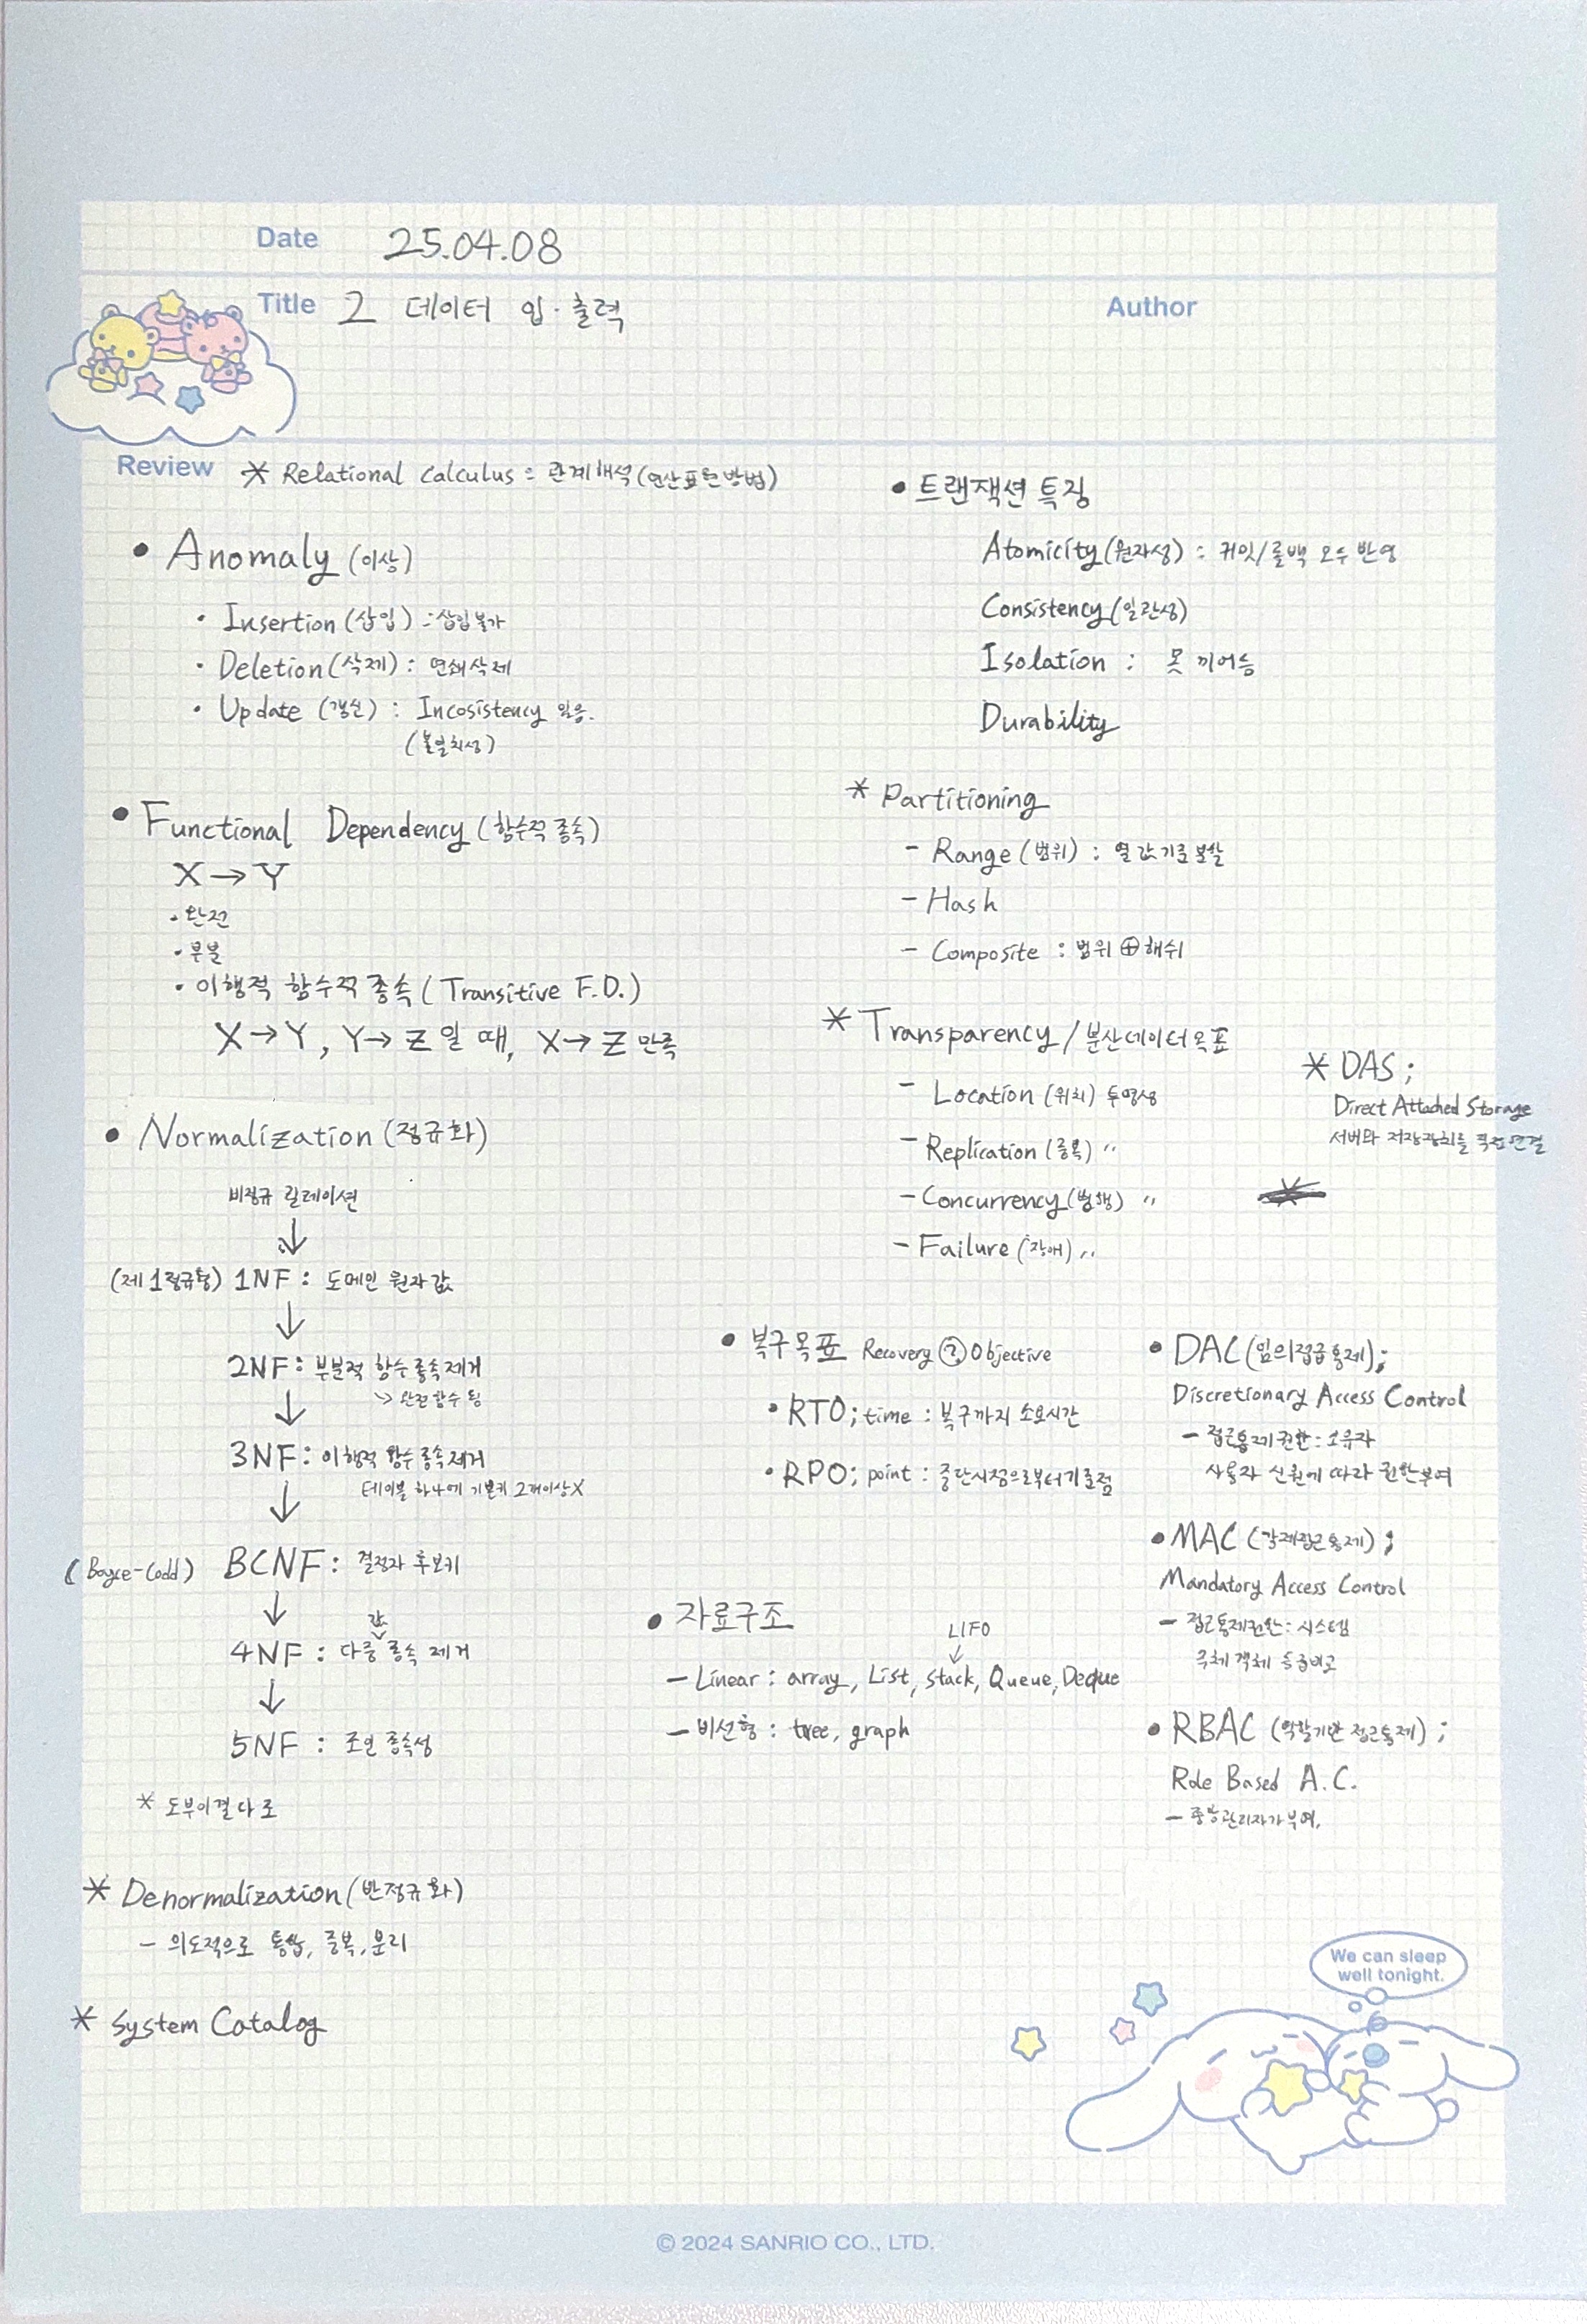 Date 25.04.08
Title 2 데이터 입·출력
Author
Review * Relational Calculus : 관계해석(연산표현방법)
• Anomaly (이상)
· Insertion (삽입) : 삽입불가
· Deletion (삭제) : 연쇄삭제
· Update (갱신) : Incosistency 있음.
(불일치성)
• Functional Dependency (함수적 종속)
X → Y
· 완전
· 부분
· 이행적 함수적 종속 (Transitive F.D.)
X → Y, Y → Z 일 때, X → Z 만족
• Normalization (정규화)
비정규 릴레이션
↓
(제1정규형) 1NF : 도메인 원자값
↓
2NF : 부분적 함수 종속 제거
↳ 완전함수 됨
↓
3NF : 이행적 함수 종속 제거
테이블 하나에 기본키 2개이상X
↓
(Boyce-Codd) BCNF : 결정자 후보키
↓
값
4NF : 다중 종속 제거
↓
5NF : 조인 종속성
* 도부이결다조
* Denormalization (반정규화)
- 의도적으로 통합, 중복, 분리
* System Catalog
• 트랜잭션 특징
Atomicity (원자성) : 커밋/롤백 모두 반영
Consistency (일관성)
Isolation : 못 끼어듬
Durability
* Partitioning
- Range (범위) : 열 값 기준 분할
- Hash
- Composite : 범위 ⊕ 해쉬
* Transparency / 분산데이터 목표
- Location (위치) 투명성
- Replication (중복) "
- Concurrency (병행) "
- Failure (장애) "
* DAS ;
Direct Attached Storage
서버와 저장장치를 직접 연결
• 복구목표 Recovery ? Objective
• RTO ; time : 복구까지 소요시간
• RPO ; point : 중단시점으로부터 기준점
• 자료구조
LIFO
↓
- Linear : array, List, stack, Queue, Deque
- 비선형 : tree, graph
• DAC (임의접근통제) ;
Discretionary Access Control
- 접근통제권한 : 소유자
사용자 신원에 따라 권한부여
• MAC (강제접근통제) ;
Mandatory Access Control
- 접근통제권한 : 시스템
주체 객체 등급비교
• RBAC (역할기반 접근통제) ;
Role Based A.C.
- 중앙관리자가 부여.
We can sleep
well tonight.
© 2024 SANRIO CO., LTD.